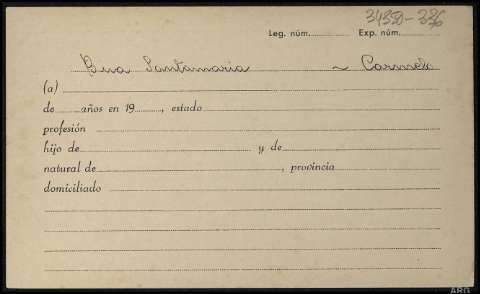 34350-336
Leg. núm. Exp. núm.
Bua Santamaria ~ Carmelo
(a)
de años en 19 , estado
profesión
hijo de y de
natural de , provincia
domiciliado
ARG